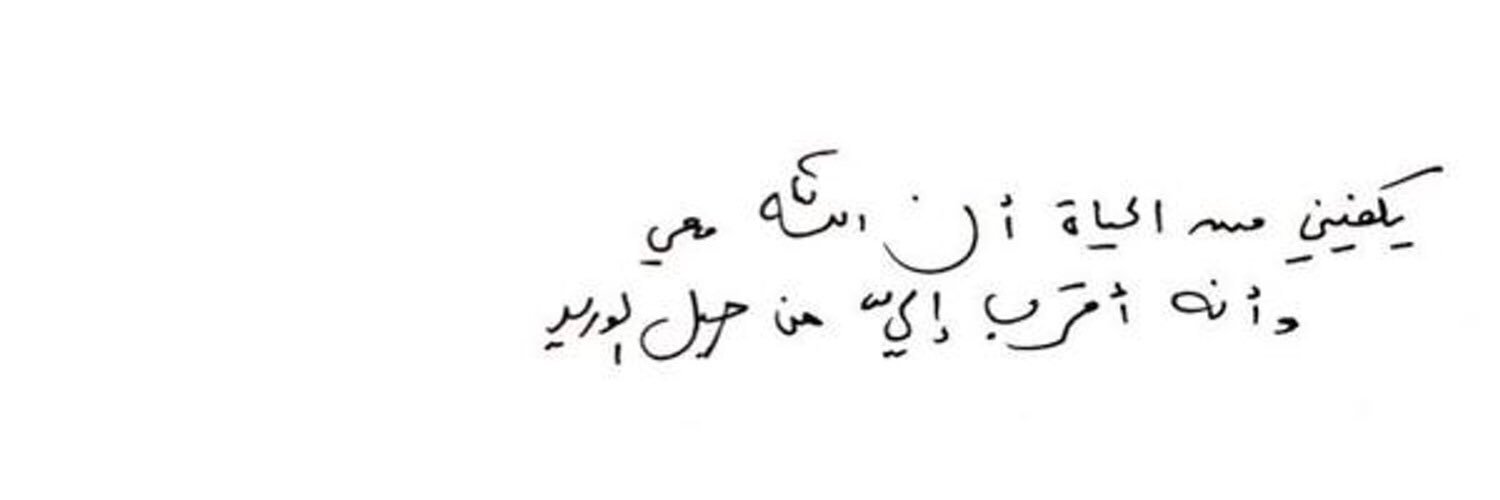 يكفيني من الحياة أن الله معي
وأنه أقرب إليّ من حبل الوريد